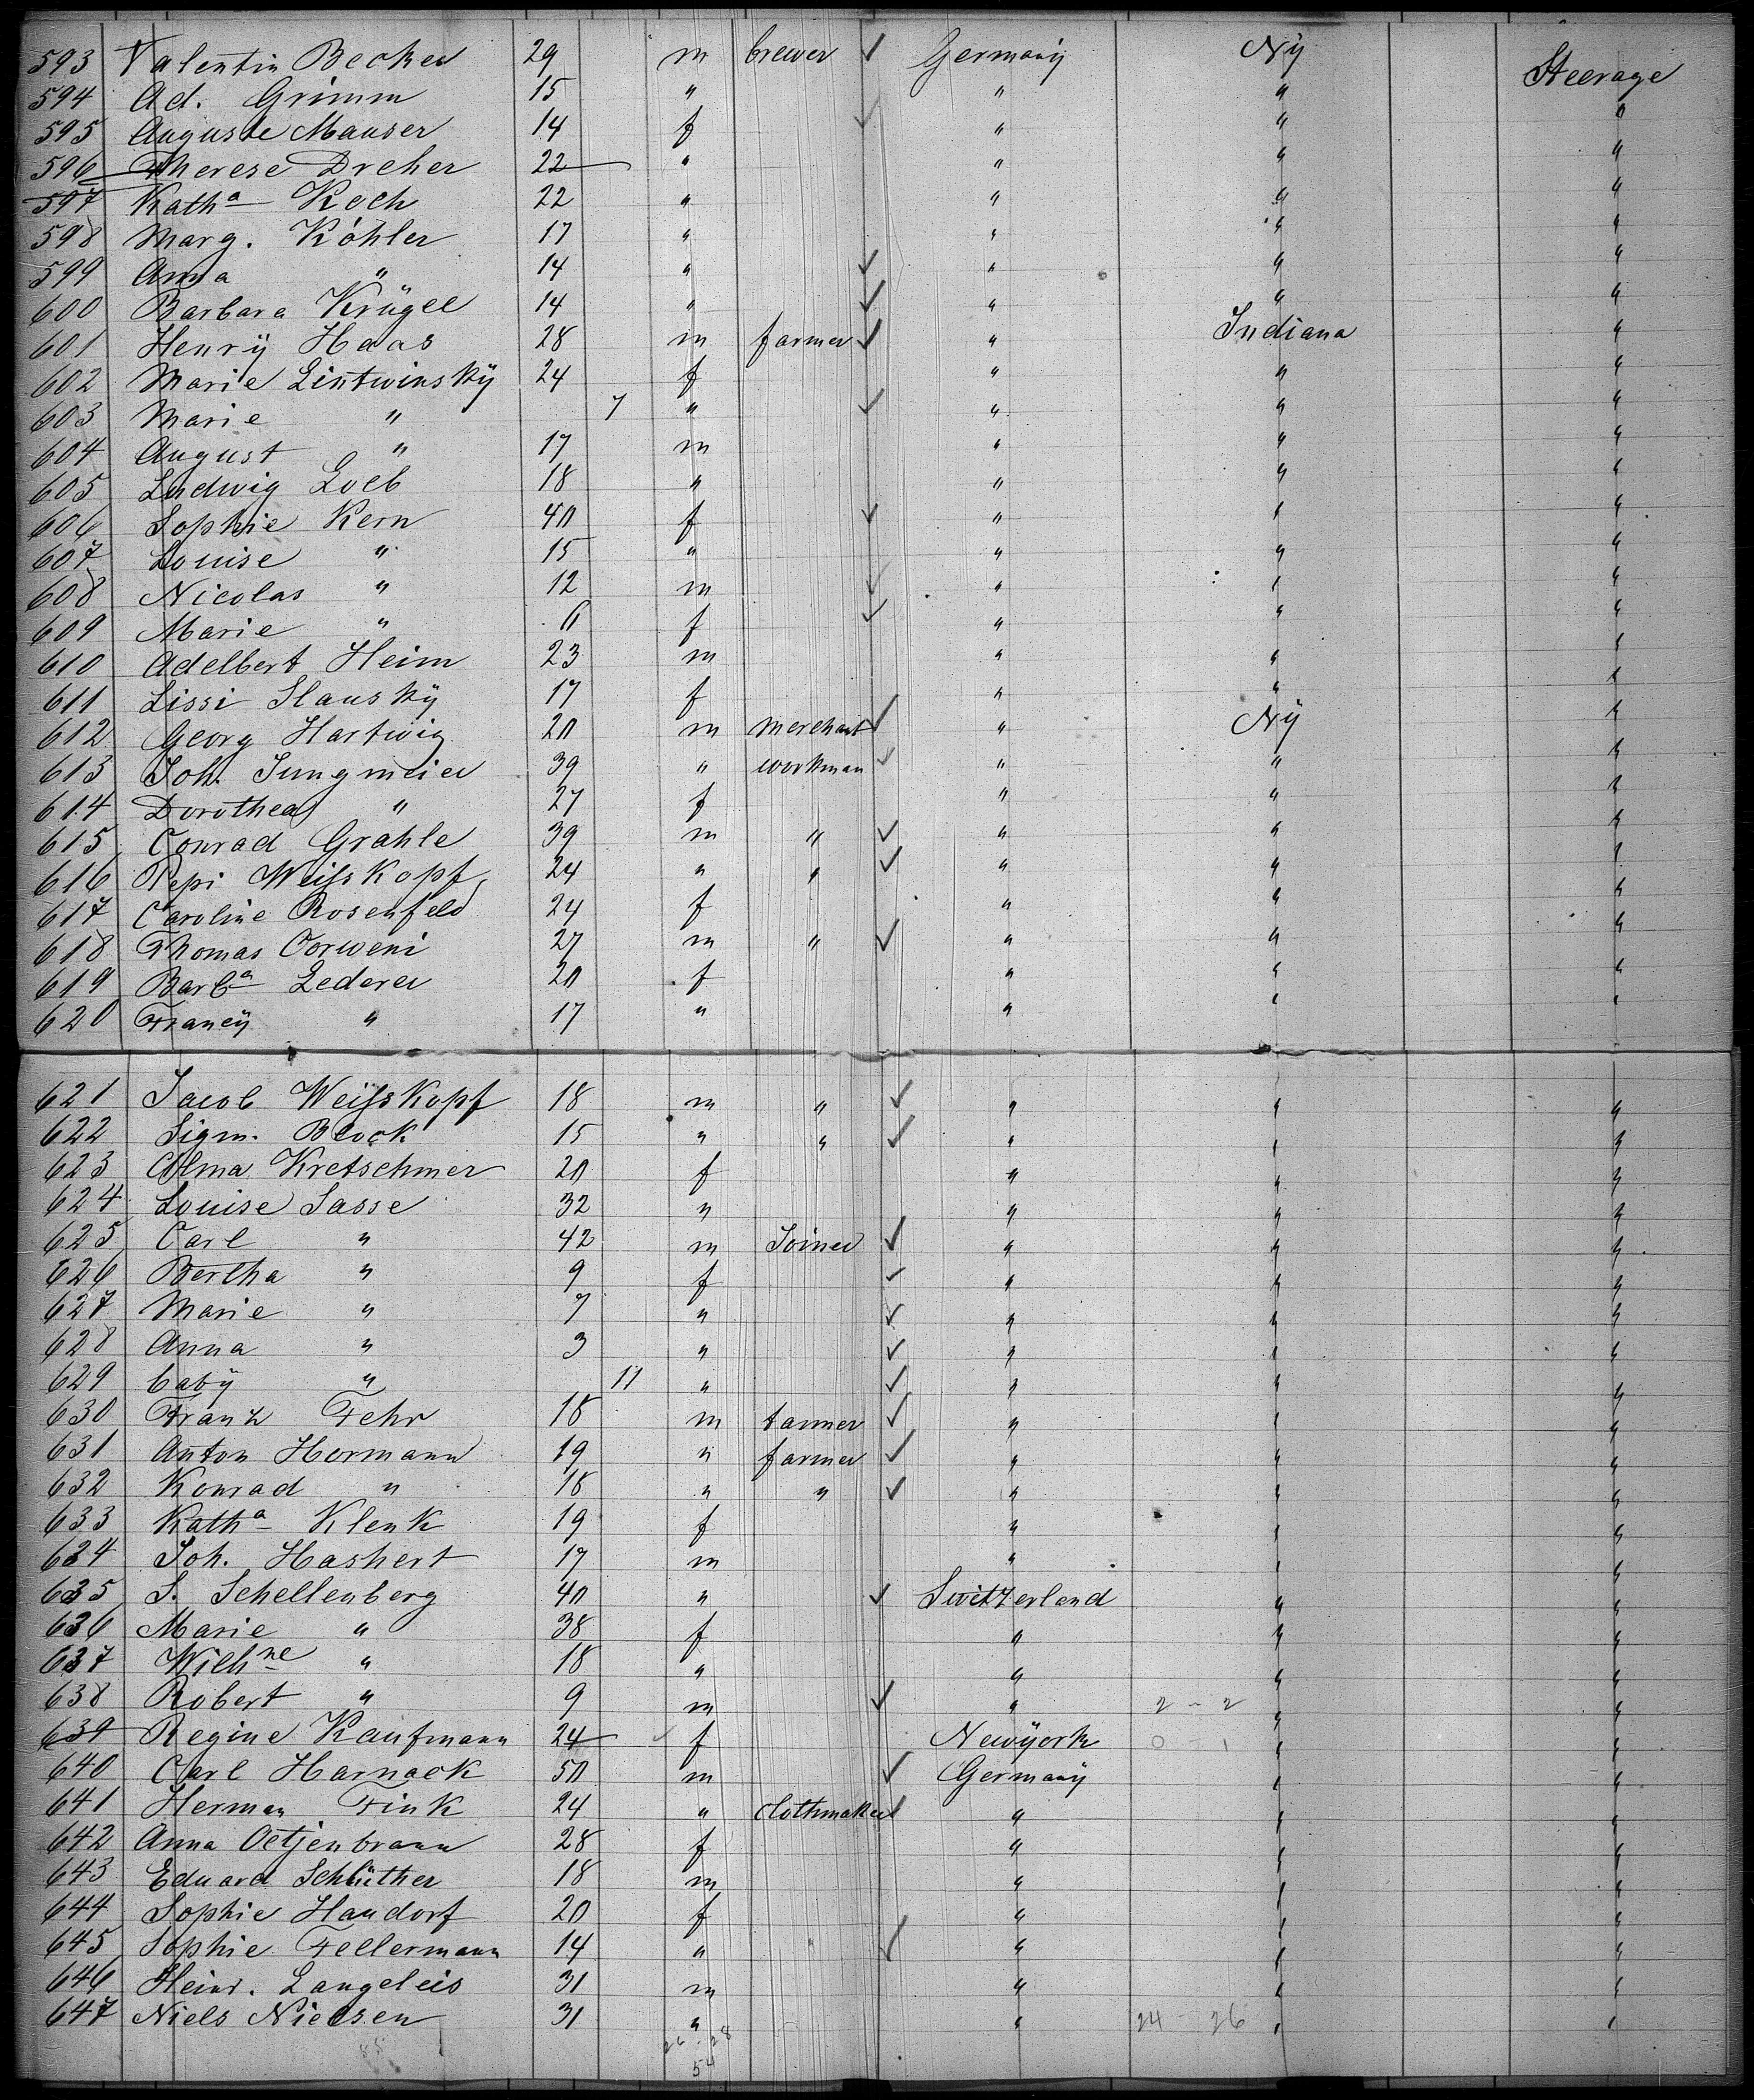 593 Valentin Becker 29 m brewer ✓ Germany Ny Steerage
594 Ad. Grimm 15 " " " "
595 Auguste Mauser 14 f ✓ " " "
596 Therese Dreher 22 " " " "
597 Kath<sup>a</sup> Koch 22 " " " "
598 Marg. Köhler 17 " " " "
599 Anna " 14 " ✓ " " "
600 Barbara Krügel 14 " ✓ " " "
601 Henry Haas 28 m farmer ✓ " Indiana "
602 Marie Lintwinsky 24 f " " "
603 Marie " 7 " ✓ " " "
604 August " 17 m " " "
605 Ludwig Loeb 18 " " " "
606 Sophie Kern 40 f ✓ " " "
607 Louise " 15 " " " "
608 Nicolas " 12 m ✓ " " "
609 Marie " f ✓ " " "
610 Adelbert Heim 23 m " " "
611 Lissi Slansky 17 f " " "
612 Georg Hartwig 20 m merchant ✓ " Ny "
613 Joh. Jungmeier 39 " workman ✓ " " "
614 Dorothea " 27 f " " "
615 Conrad Grahle 39 m " ✓ " " "
616 Pepi Weisskopf 24 " " ✓ " " "
617 Caroline Rosenfeld 24 f " " "
618 Thomas Corweni 27 m " ✓ " " "
619 Barb<sup>a</sup> Lederer 20 f " " "
620 Franey " 17 " " " "
621 Jacob Weisskopf 18 m " ✓ " " "
622 Sigm. Block 15 " " ✓ " " "
623 Alma Kretschmer 20 f " " "
624 Louise Sasse 32 " " " "
625 Carl " 42 m Joiner ✓ " " "
626 Bertha " 9 f ✓ " " "
627 Marie " 7 " ✓ " " "
628 Anna " 3 " ✓ " " "
629 baby " 11 " ✓ " " "
630 Franz Fehr 18 m tanner ✓ " " "
631 Anton Hermann 19 " farmer ✓ " " "
632 Konrad " 18 " " ✓ " " "
633 Kath<sup>a</sup> Klenk 19 f " " "
634 Joh. Hashert 17 m " " "
635 S. Schellenberg 40 " ✓ Switzerland " "
636 Marie " 38 f " " "
637 Wilh<sup>ne</sup> " 18 " " " "
638 Robert " 9 m ✓ " 2 - 2 " "
639 Regine Kaufmann 24 ✓ f Newyork 0 1 " "
640 Carl Harnack 50 m ✓ Germany " "
641 Herman Fink 24 " clothmaker ✓ " " "
642 Anna Oetjenbraun 28 f " " "
643 Eduard Schlüther 18 m " " "
644 Sophie Haudorf 20 f " " "
645 Sophie Fellermann 14 " ✓ " " "
646 Heinr. Langeleis 31 m " " "
647 Niels Nielsen 31 " " 24 - 26 " "
26 - 28
54